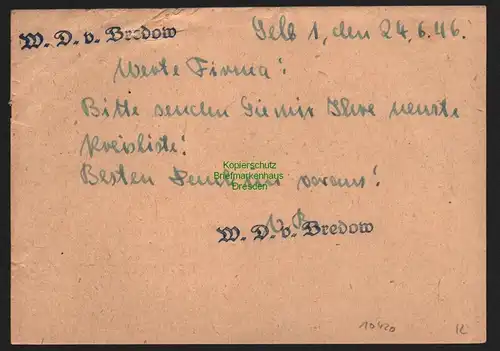 W. D. v. Bredow
Selb 1, den 24.6.46.
Werte Firma!
Bitte senden Sie mir Ihre neuste
Preisliste!
Kopierschutz
Briefmarkenhaus
Dresden
Besten Dank im voraus!
W. D. v. Bredow
10420